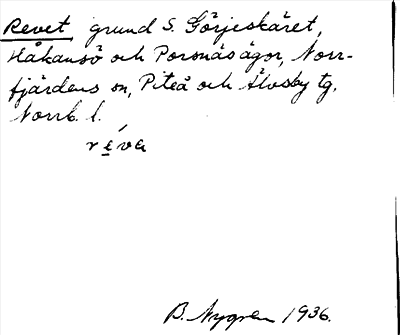 Revet, grund S. Görjeskäret,
Håkansö och Porsnäs ägor, Norr-
fjärdens sn, Piteå och Älvsby tg.
Norrb. l.
révα
B. Nygren 1936.